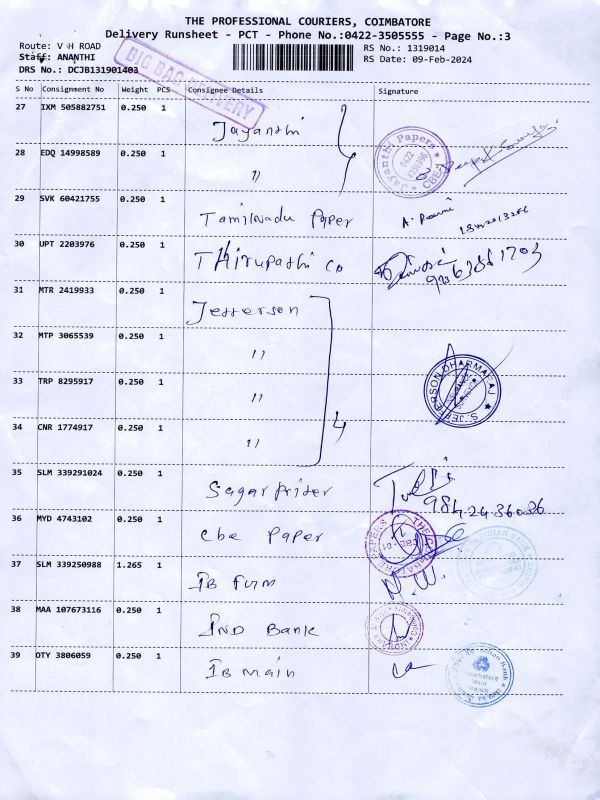 THE PROFESSIONAL COURIERS, COIMBATORE
Delivery Runsheet - PCT - Phone No.:0422-3505555 - Page No.:3
Route: V H ROAD
RS No.: 1319014
Staff: ANANTHI
RS Date: 09-Feb-2024
DRS No.: DCJB131901403
BIG BAG DELIVERY
S No Consignment No Weight PCS Consignee Details Signature
27 IXM 505882751 0.250 1 Jayanthi
28 EDQ 14998589 0.250 1 "
Jayanthi Papers
0422
CBE
29 SVK 60421755 0.250 1 Tamilnadu Paper
30 UPT 2203976 0.250 1 Thirupathi Co
31 MTR 2419933 0.250 1 Jefferson
32 MTP 3065539 0.250 1 "
33 TRP 8295917 0.250 1 "
S. JEFFERSON DHARMARAJ
34 CNR 1774917 0.250 1 "
4
35 SLM 339291024 0.250 1
36 MYD 4743102 0.250 1 Cbe Paper
37 SLM 339250988 1.265 1 IB Furm
38 MAA 107673116 0.250 1 IND Bank
39 OTY 3806059 0.250 1 IB Main
Coimbatore
Main
Branch